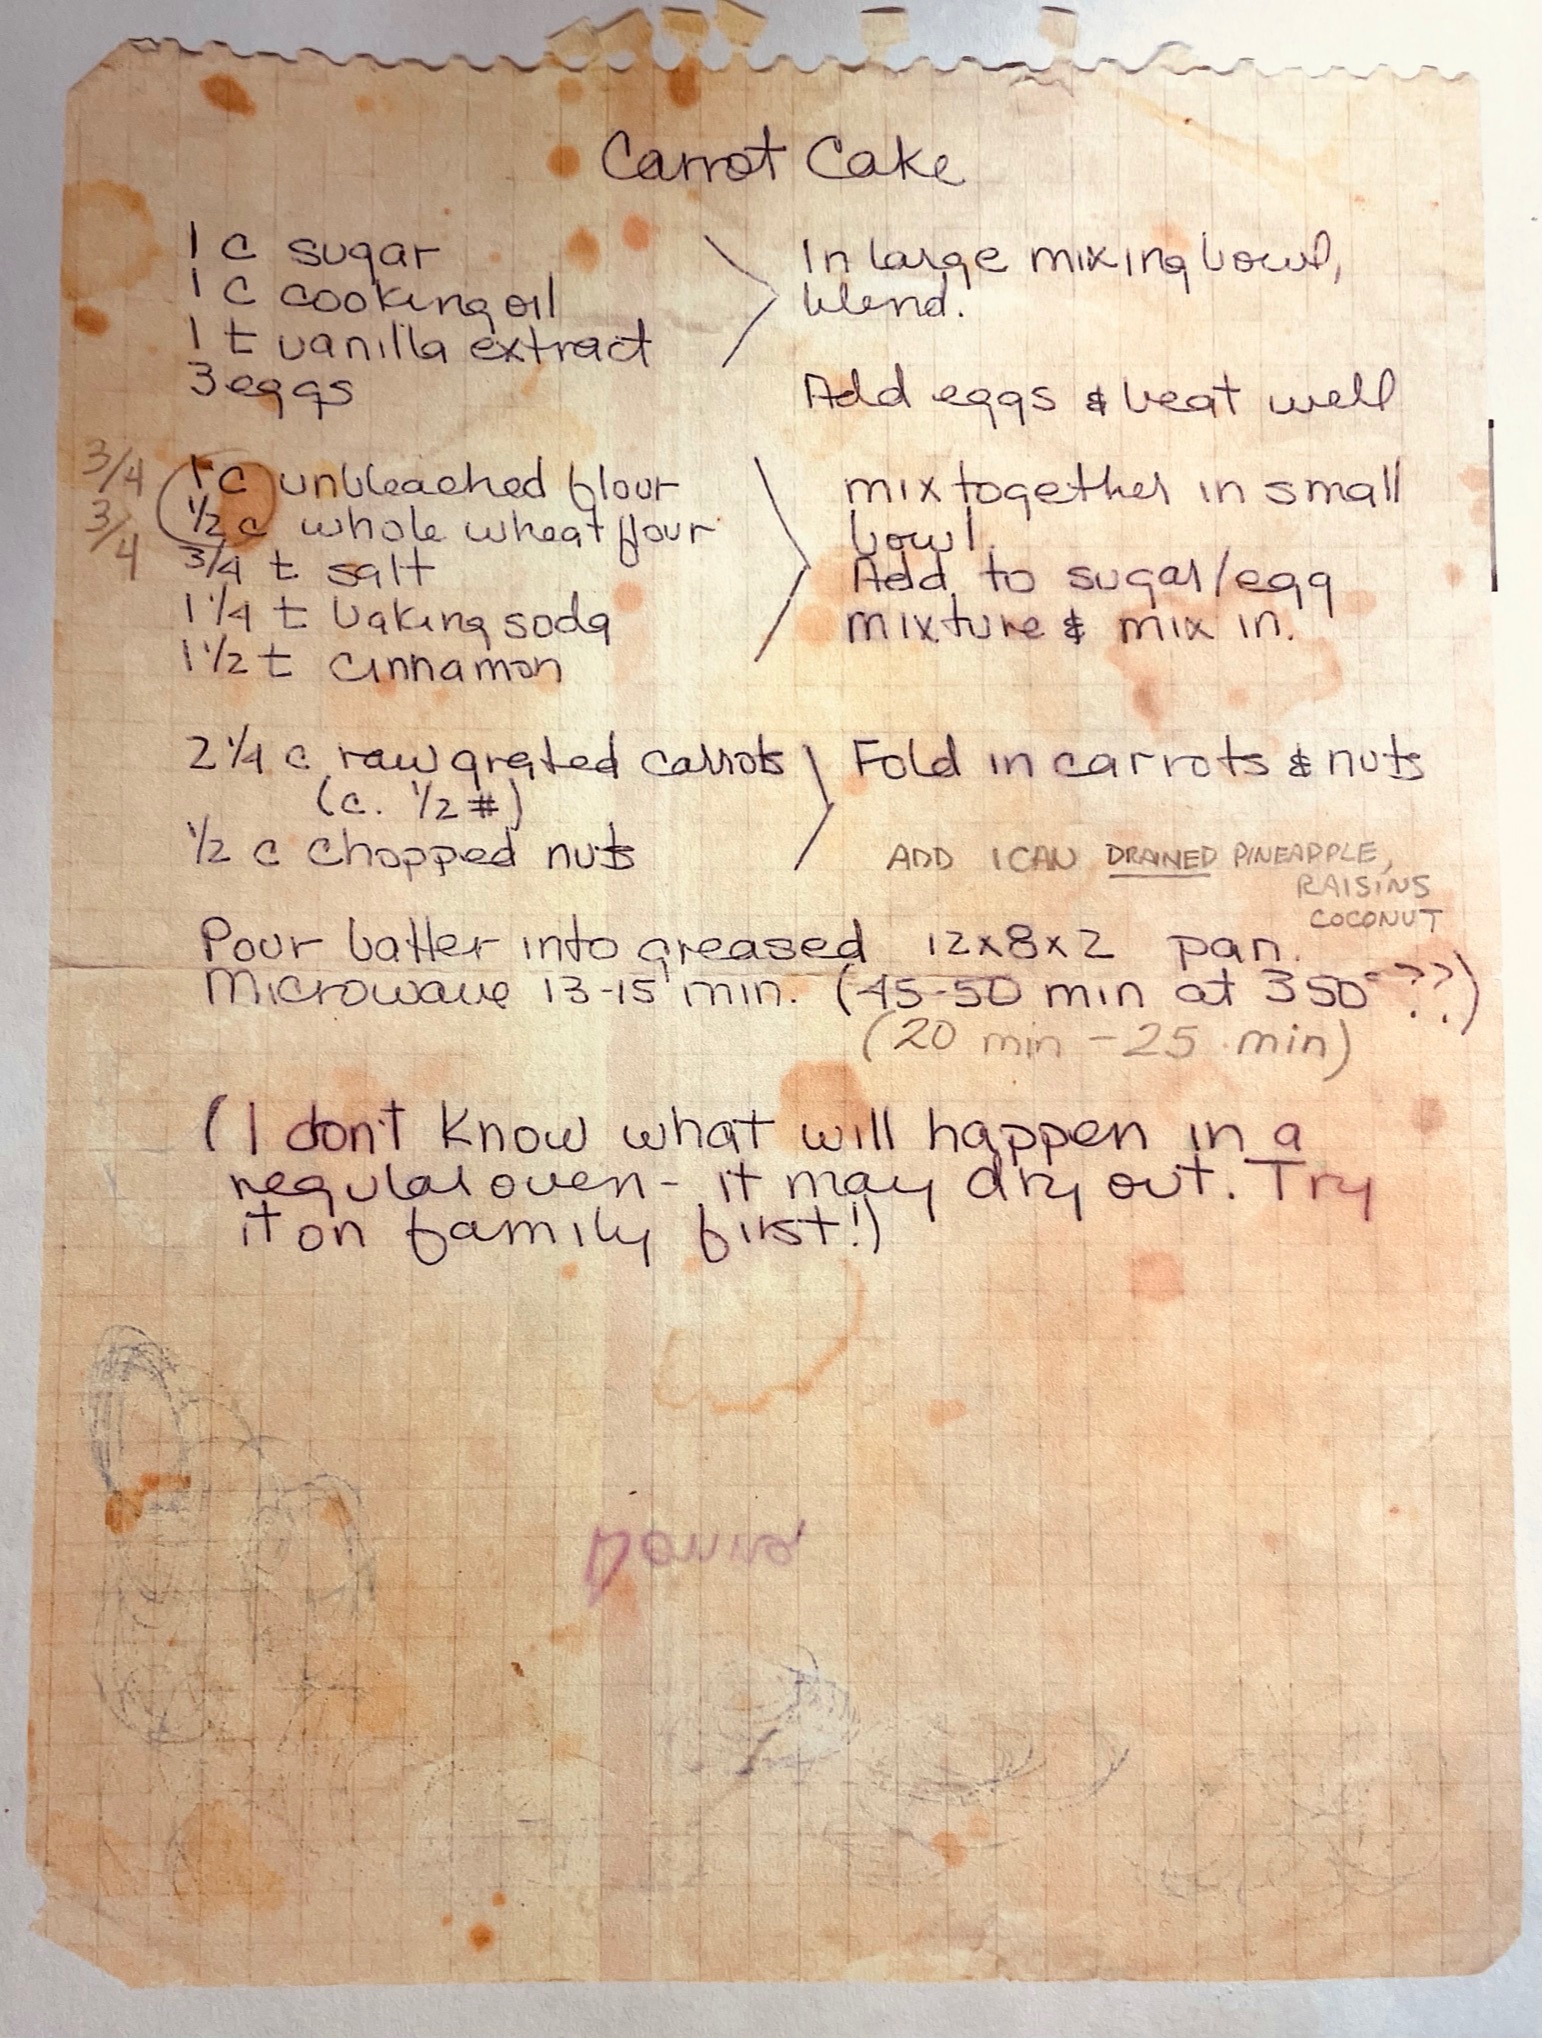 Carrot Cake
1 c sugar
1 c cooking oil
1 t vanilla extract
3 eggs
In large mixing bowl,
blend.
Add eggs & beat well
3/4 1 c unbleached flour
3/4 1/2 c whole wheat flour
3/4 t salt
1 1/4 t baking soda
1 1/2 t cinnamon
mix together in small
bowl.
Add to sugar/egg
mixture & mix in.
2 1/4 c raw grated carrots
(c. 1/2 #)
1/2 c chopped nuts
Fold in carrots & nuts
ADD 1 CAN DRAINED PINEAPPLE,
RAISINS
COCONUT
Pour batter into greased 12x8x2 pan.
Microwave 13-15 min. (45-50 min at 350° ??)
(20 min - 25 min)
(I don't know what will happen in a
regular oven - it may dry out. Try
it on family first!)